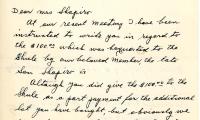 Dear Mrs Shapiro
At our recent meeting I have been
instructed to write you in regard to
the $100.00 which was bequested to the
Shule by our beloved member the late
Sam Shapiro
Altough you did give the $100.00 to the
Shule as a part payment for the additional
lot you have bought, but obviously we